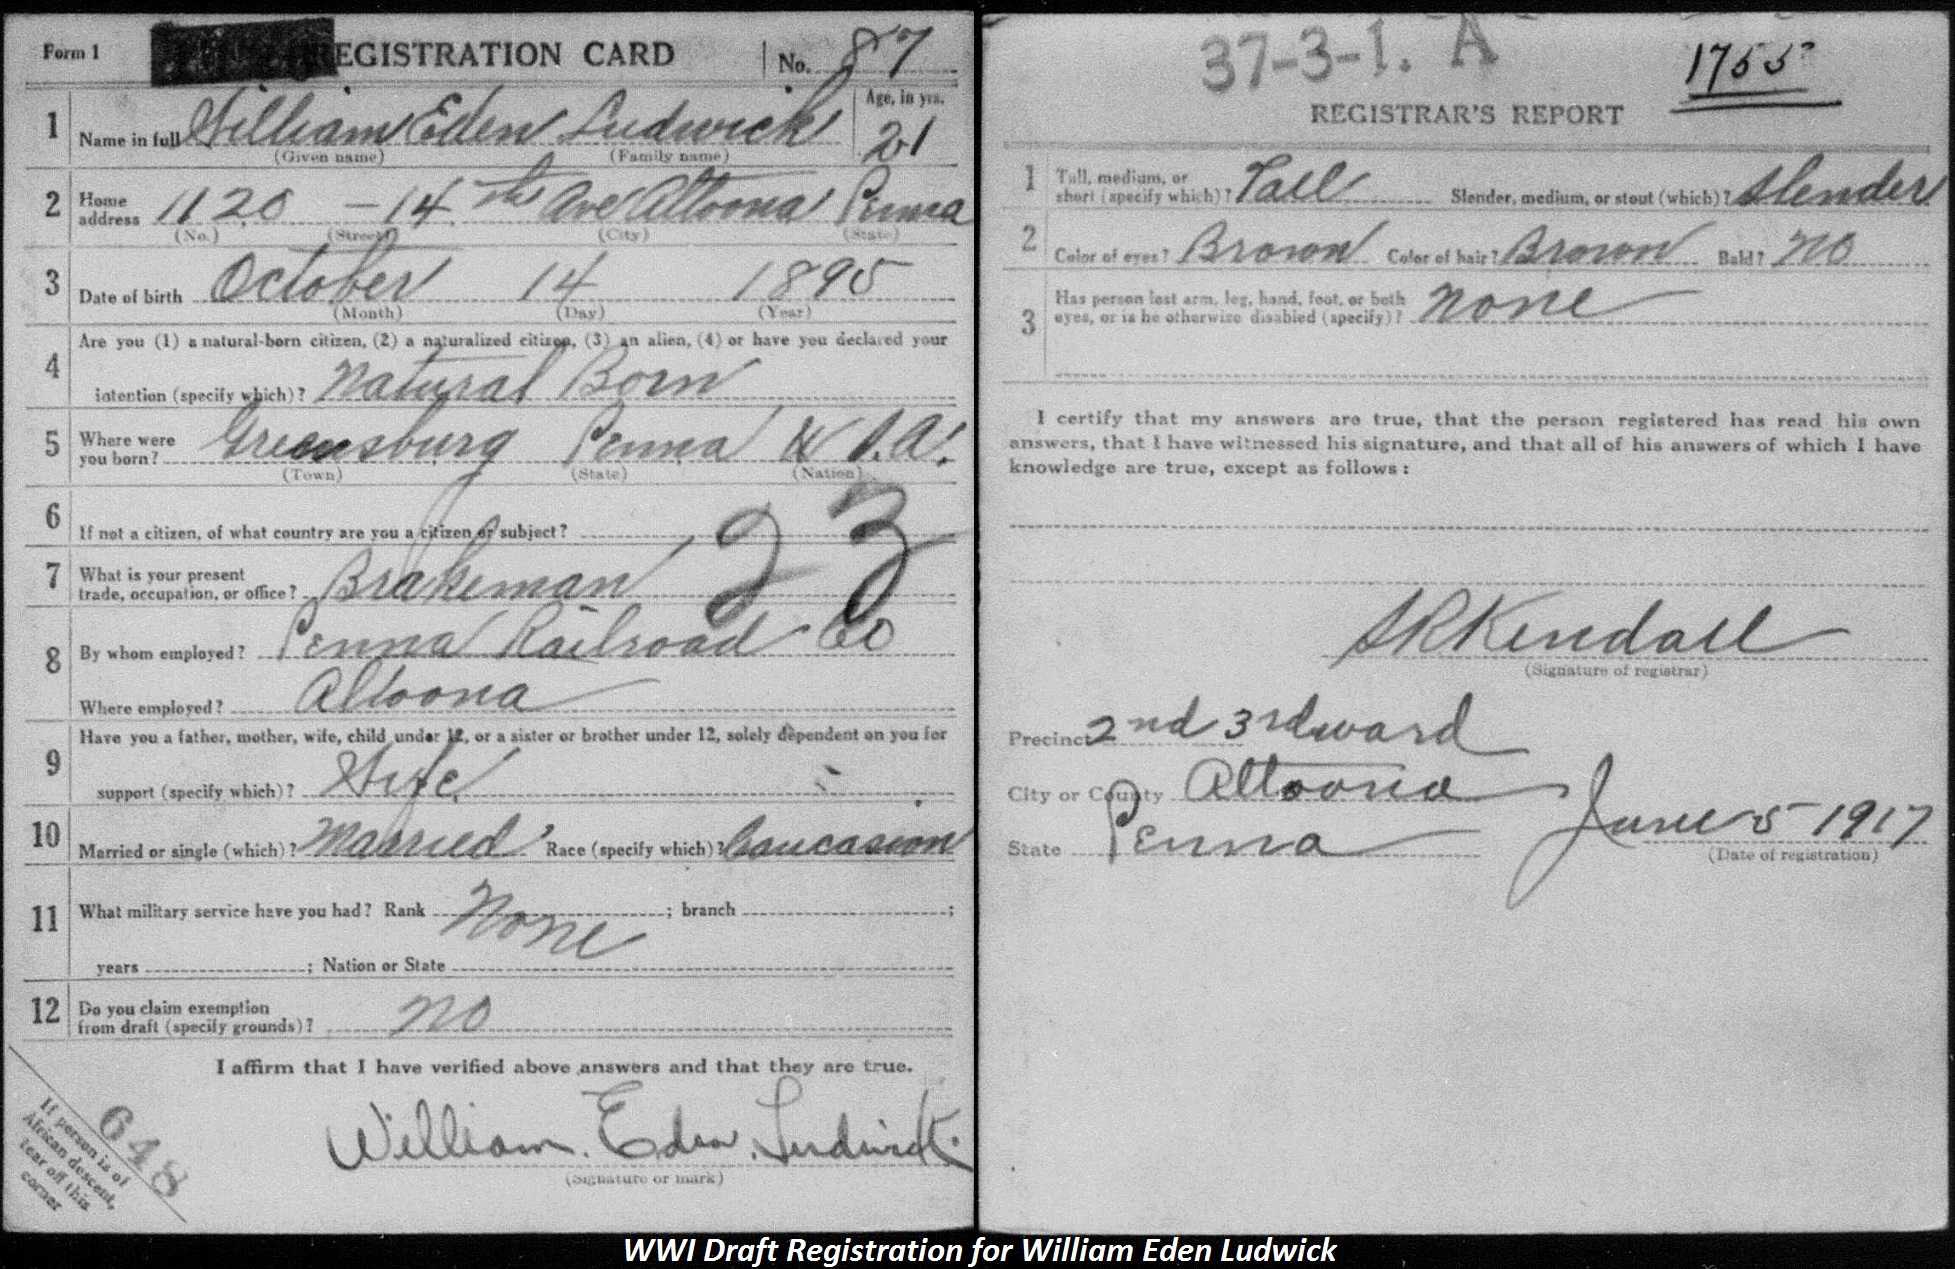 Form 1 REGISTRATION CARD No. 87
1 Name in full William Eden Ludwick Age, in yrs. 21
(Given name) (Family name)
2 Home address 1120 - 14th Ave Altoona Penna
(No.) (Street) (City) (State)
3 Date of birth October 14 1895
(Month) (Day) (Year)
4 Are you (1) a natural-born citizen, (2) a naturalized citizen, (3) an alien, (4) or have you declared your
intention (specify which)? Natural Born
5 Where were you born? Greensburg Penna U.S.A.
(Town) (State) (Nation)
6 If not a citizen, of what country are you a citizen or subject?
23
7 What is your present trade, occupation, or office? Brakeman
8 By whom employed? Penna Railroad Co
Where employed? Altoona
9 Have you a father, mother, wife, child under 12, or a sister or brother under 12, solely dependent on you for
support (specify which)? Wife
10 Married or single (which)? Married Race (specify which)? Caucasion
11 What military service have you had? Rank None ; branch ;
years ; Nation or State
12 Do you claim exemption from draft (specify grounds)? No
I affirm that I have verified above answers and that they are true.
William. Eden. Ludwick.
(Signature or mark)
648
If person is of
African descent,
tear off this
corner
37-3-1. A 1755
REGISTRAR'S REPORT
1 Tall, medium, or short (specify which)? Tall Slender, medium, or stout (which)? Slender
2 Color of eyes? Brown Color of hair? Brown Bald? No
3 Has person lost arm, leg, hand, foot, or both eyes, or is he otherwise disabled (specify)? None
I certify that my answers are true, that the person registered has read his own
answers, that I have witnessed his signature, and that all of his answers of which I have
knowledge are true, except as follows:
S R Kendall
(Signature of registrar)
Precinct 2nd 3rd ward
City or County Altoona
State Penna June 5 1917
(Date of registration)
WWI Draft Registration for William Eden Ludwick